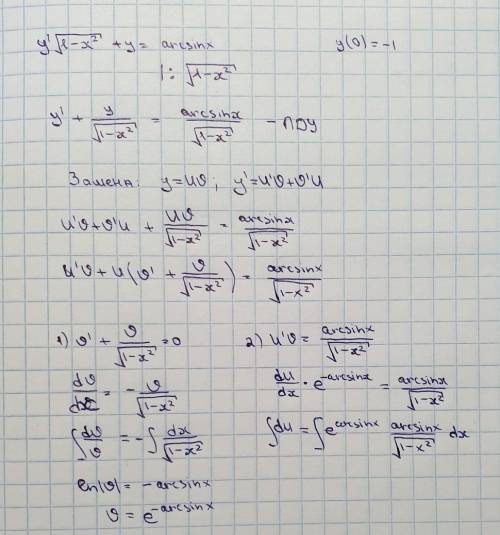 y'√(1-x²) + y = arcsinx    y(0) = -1
| : √(1-x²)
y' + y/√(1-x²) = arcsinx/√(1-x²) - ЛДУ
Замена: y=uϑ; y'=u'ϑ+ϑ'u
u'ϑ+ϑ'u + uϑ/√(1-x²) = arcsinx/√(1-x²)
u'ϑ + u(ϑ' + ϑ/√(1-x²)) = arcsinx/√(1-x²)
1) ϑ' + ϑ/√(1-x²) = 0
dϑ/dx = - ϑ/√(1-x²)
∫dϑ/ϑ = -∫dx/√(1-x²)
ln|ϑ| = -arcsinx
ϑ = e^(-arcsinx)
2) u'ϑ = arcsinx/√(1-x²)
du/dx · e^(-arcsinx) = arcsinx/√(1-x²)
∫du = ∫e^(arcsinx) arcsinx/√(1-x²) dx